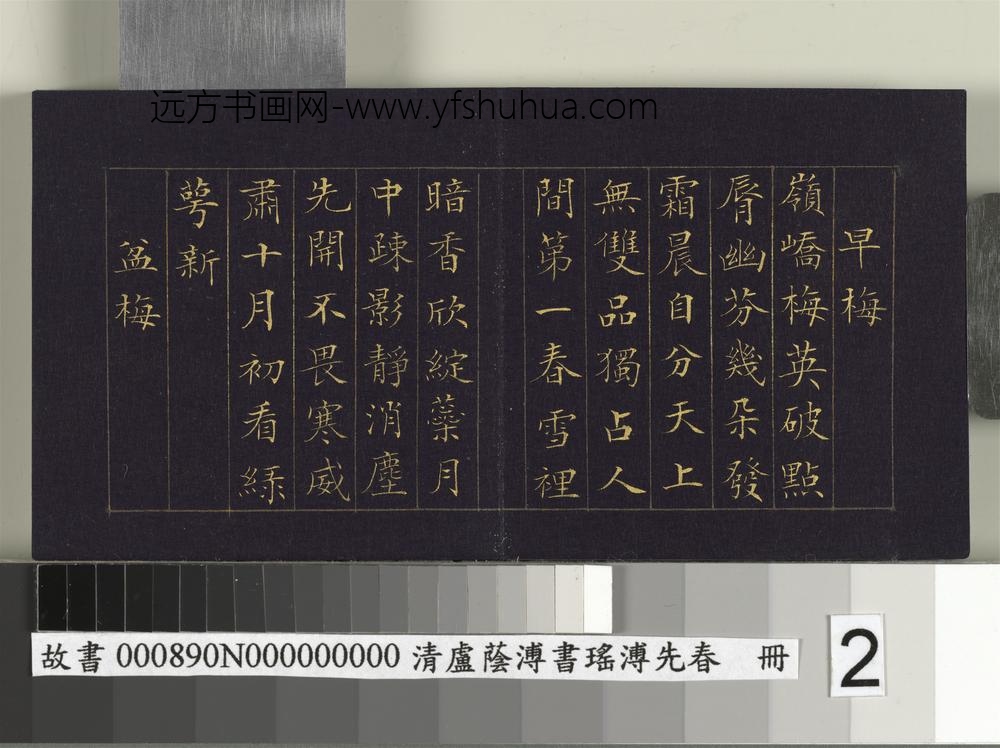 远方书画网-www.yfshuhua.com
早梅
嶺嶠梅英破點
脣幽芬幾朵發
霜晨自分天上
無雙品獨占人
間第一春雪裡
暗香欣綻蘂月
中疎影靜消塵
先開不畏寒威
肅十月初看綠
萼新
盆梅
故書 000890N000000000 清盧蔭溥書瑤溥先春 冊
2